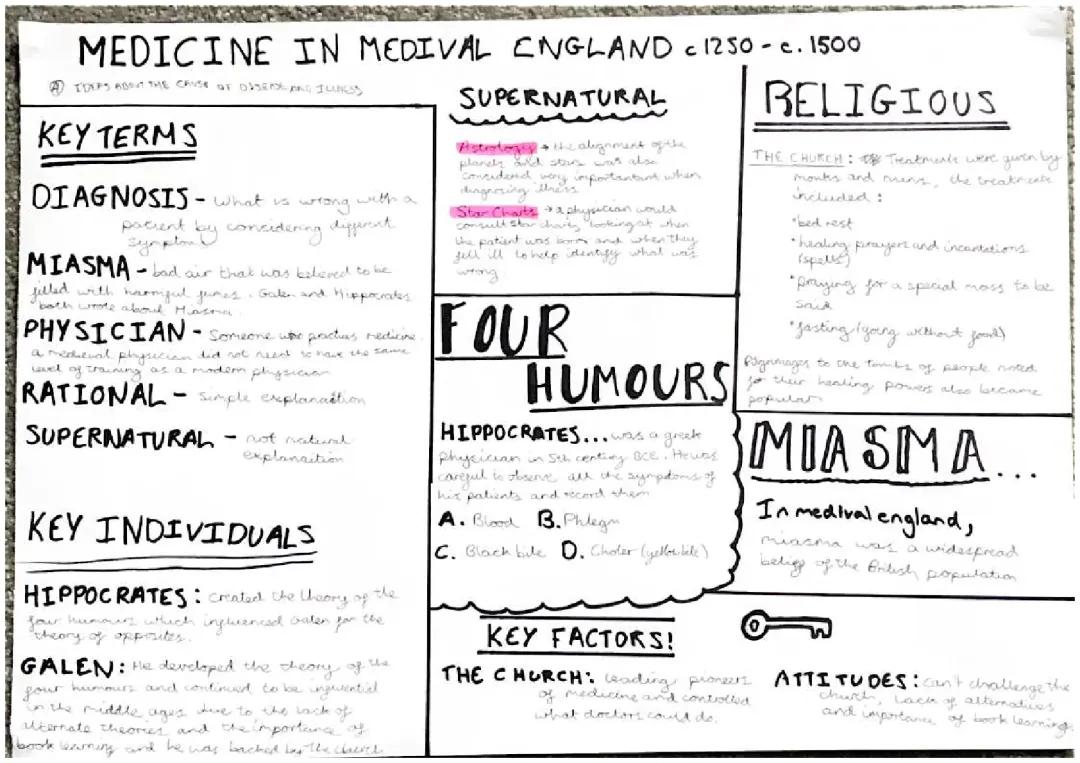 MEDICINE IN MEDIVAL ENGLAND c1250 - c. 1500
A IDEAS ABOUT THE CAUSE OF DISEASE AND ILLNESS
KEY TERMS
DIAGNOSIS - what is wrong with a
patient by considering different
symptoms
MIASMA - bad air that was believed to be
filled with harmful fumes. Galen and Hippocrates
both wrote about Miasma.
PHYSICIAN - Someone who practises medicine.
a medieval physician did not need to have the same
level of training as a modern physician
RATIONAL - simple explanation
SUPERNATURAL - not natural
explanaition
KEY INDIVIDUALS
HIPPOCRATES: created the theory of the
four humours which influenced Galen for the
theory of opposites.
GALEN: He developed the theory of the
four humours and continued to be influential
in the middle ages due to the lack of
alternate theories and the importance of
book learning and he was backed by the church
SUPERNATURAL
Astrology → the alignment of the
planets and stars was also
considered very importantant when
diagnosing illness
Star Charts → a physician would
consult star charts, looking at when
the patient was born and when they
fell ill to help identify what was
wrong.
FOUR
HUMOURS
HIPPOCRATES... was a greek
physician in 5th century BCE. He was
careful to observe all the symptoms of
his patients and record them
A. Blood B. Phlegm
C. Black bile D. Choler (yellow bile)
RELIGIOUS
THE CHURCH: Treatments were given by
monks and nuns, the treatments
included:
*bed rest
*healing prayers and incantations
(spells)
*praying for a special mass to be
said
*fasting (going without food)
Pilgrimages to the tombs of people noted
for their healing powers also became
popular
MIASMA...
In medival england,
miasma was a widespread
belief of the British population
KEY FACTORS!
THE CHURCH: leading pioneers
of medicine and controlled
what doctors could do.
ATTITUDES: can't challenge the
church, lack of alternatives
and importance of book learning.